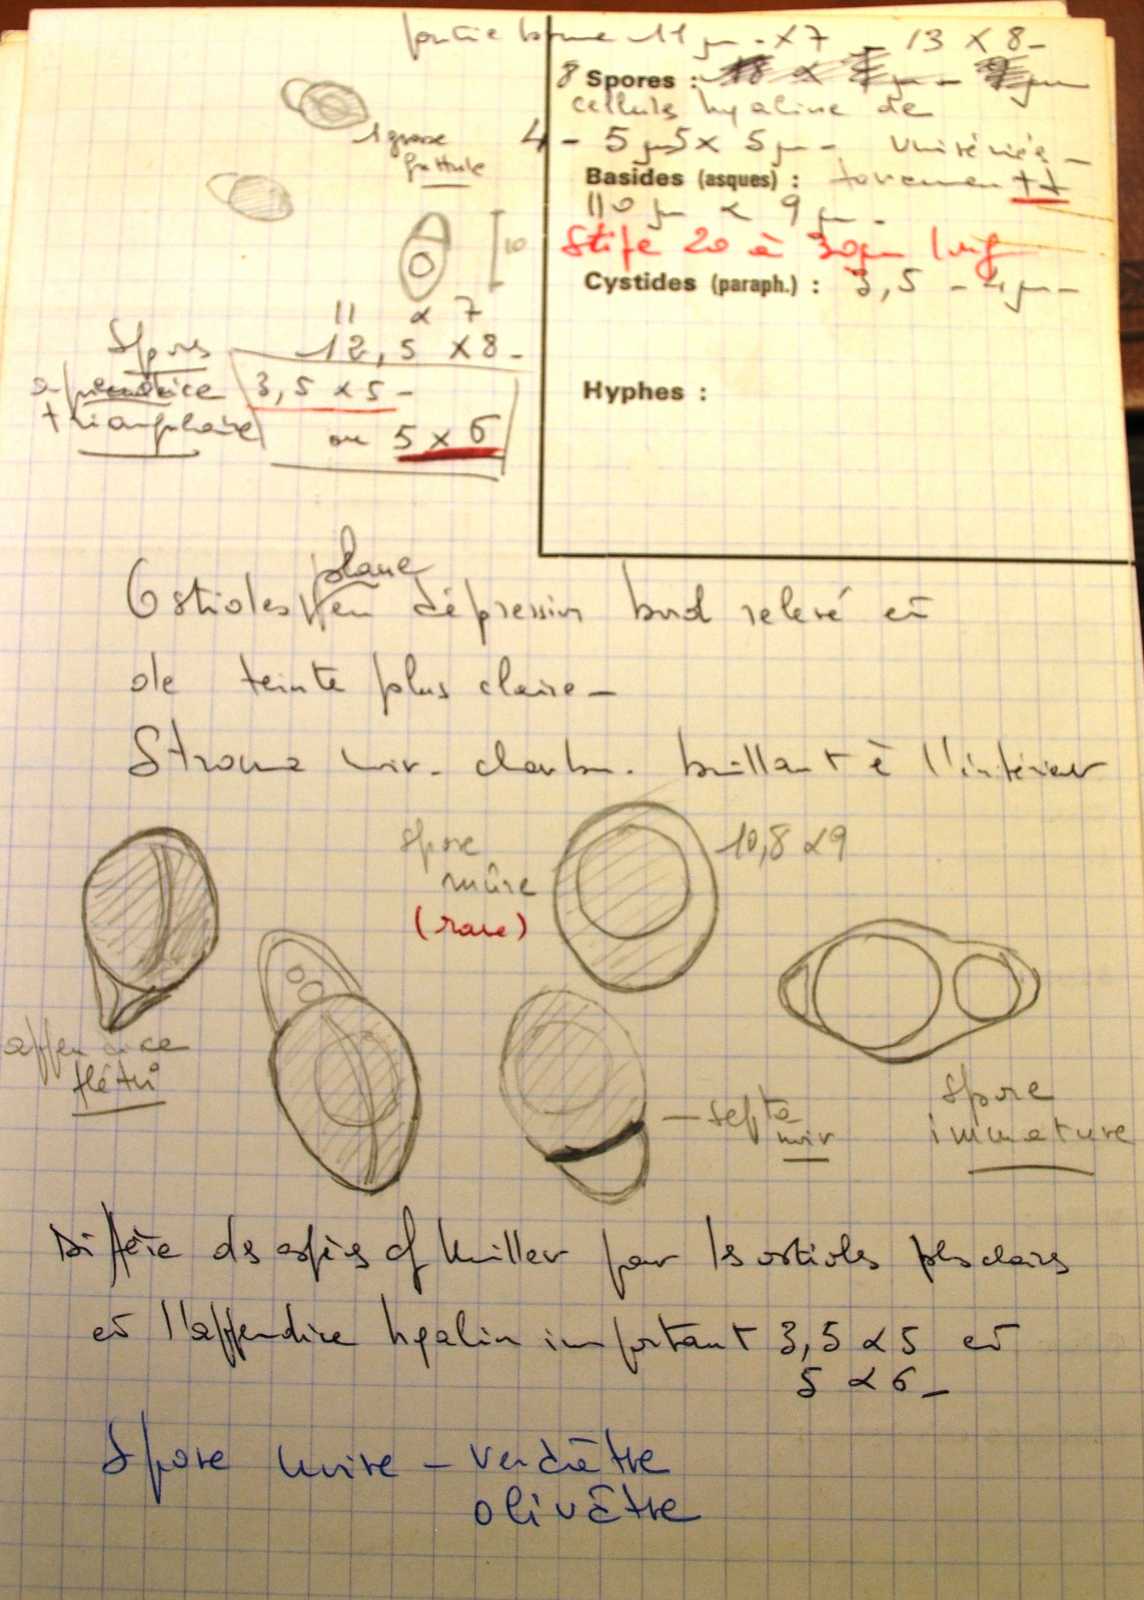 partie brune 11 µm - x 7 - 13 x 8 -
8 Spores :
cellule hyaline de
4 - 5 µm 5 x 5 µm - unisériés -
Basides (asques) : forcemen ++
110 µm x 9 µm -
Stipe 20 à 30 µm long
Cystides (paraph.) : 3,5 - 4 µm -
Hyphes :
1 grosse
guttule
10
11 x 7
Spores 12,5 x 8 -
appendice 3,5 x 5 -
triangulaire ou 5 x 6
plane
Ostioles en dépression bord relevé et
de teinte plus claire -
Stroma noir - charbon. brillant à l'intérieur
spore
mûre
(rare)
10,8 x 9
appendice
flétri
septa
noir
Spore
immature
Diffère des espèces cf Miller par les ostioles plus clairs
et l'appendice hyalin important 3,5 x 5 et
5 x 6 -
Spore noire - verdâtre
olivâtre